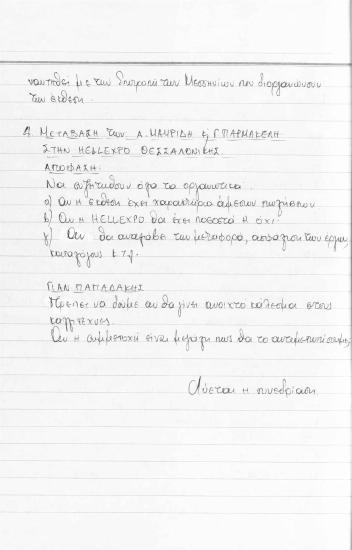 ναντηθεί με την επιτροπή των Μεσσηνίων που διοργανώνουν
την έκθεση.
4. ΜΕΤΑΒΑΣΗ των Α. ΜΑΥΡΙΔΗ & Γ. ΠΑΡΜΑΚΕΛΗ
ΣΤΗΝ HELLEXPO ΘΕΣΣΑΛΟΝΙΚΗΣ
ΑΠΟΦΑΣΗ:
Να συζητηθούν όλα τα οργανωτικά.
α) Αν η έκθεση έχει χαρακτήρα άμεσων πωλήσεων
β) Αν η HELLEXPO θα έχει ποσοστά ή όχι
γ) Αν θα αναλάβει την μεταφορά, ασφάλιση των έργων,
καταλόγους κ.τ.λ.
ΓΙΑΝ. ΠΑΠΑΔΑΚΗΣ
Πρέπει να δούμε αν θα γίνει ανοιχτό κάλεσμα στους
καλλιτέχνες.
Αν η συμμετοχή είναι μεγάλη πως θα το αντιμετωπίσουμε;
Λύεται η συνεδρίαση